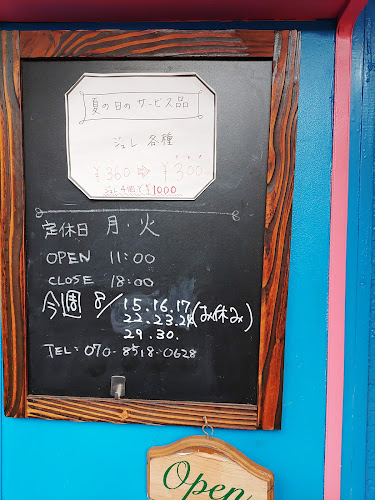 夏の日のサービス品
ジュレ 各種
¥360 ⇨ ¥300
ジュレ4個で¥1000
定休日 月・火
OPEN 11:00
CLOSE 18:00
今週 8/15.16.17
22.23.24(お休み)
29.30.
TEL: 070-8518-0628
Open